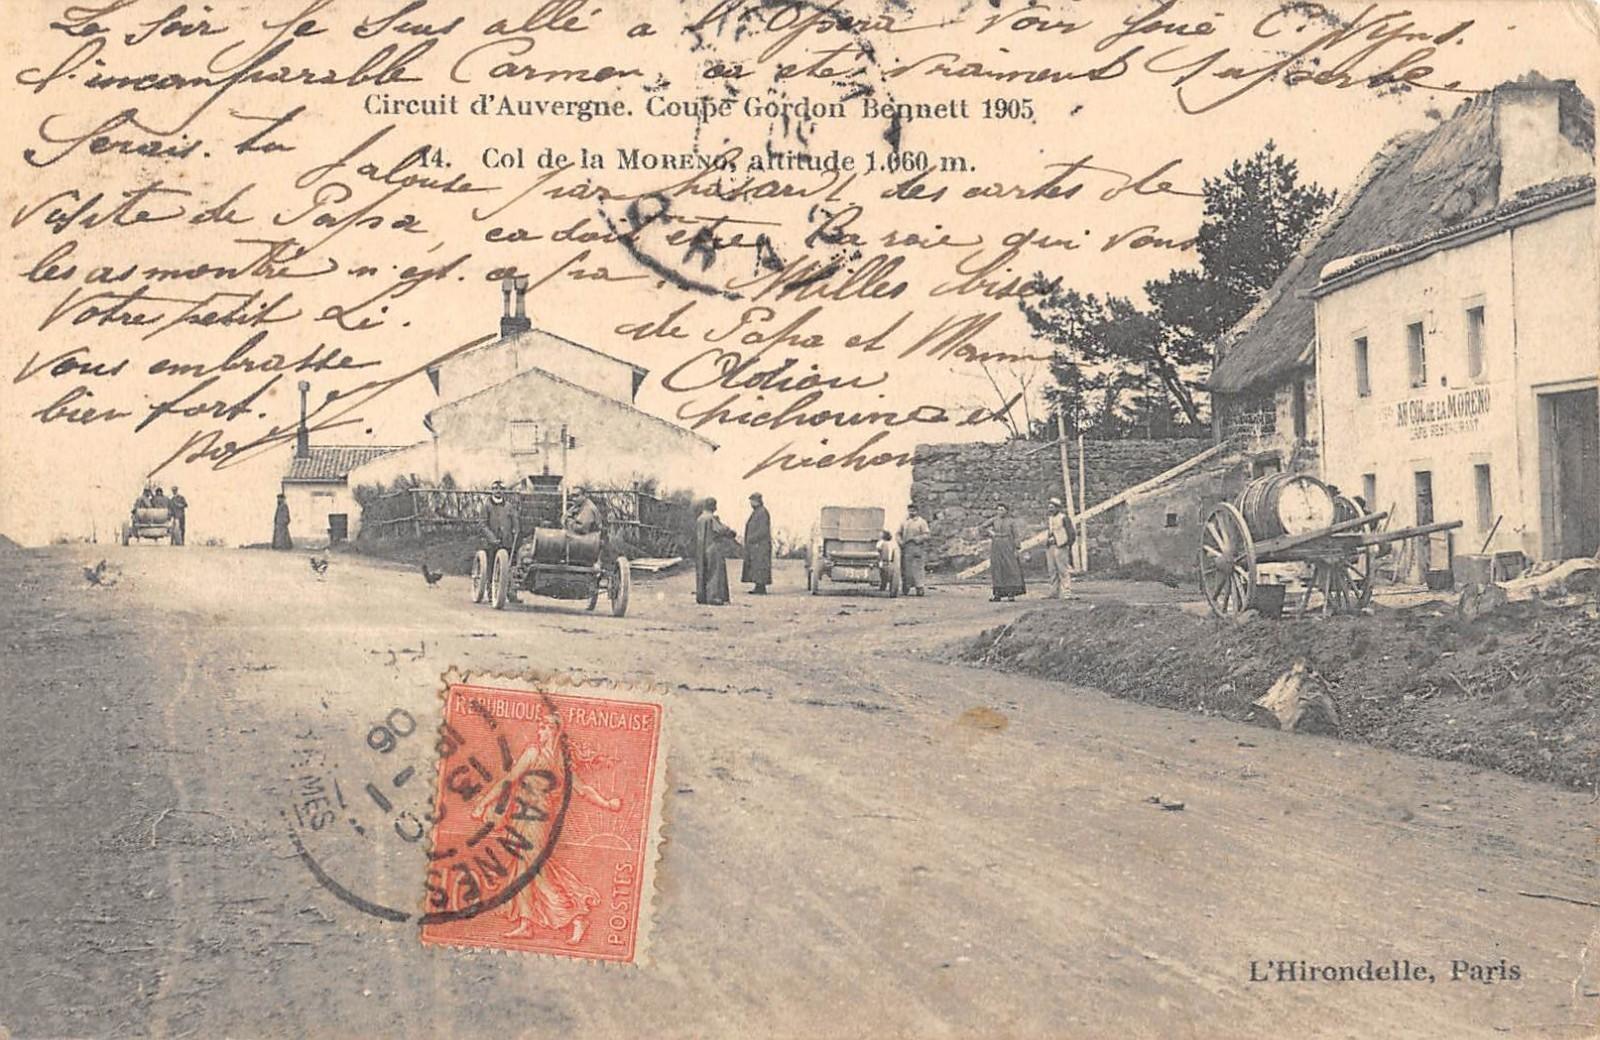 Le soir je suis allé a l'Opera voir joué C. Wyns.
l'incomparable Carmen, ca eté vraiment superbe.
Circuit d'Auvergne. Coupe Gordon Bennett 1905
Serais. tu
14. Col de la MORENO, altitude 1.060 m.
jalouse par hasard des cartes de
visite de Papa, ca doit etre la raie qui vous
les as montré n'est. ce pas. Milles bises
Votre petit Li. de Papa et Maman
vous embrasse
bien fort.
pichoune et
pichon
AU COL DE LA MORENO
CAFE RESTAURANT
REPUBLIQUE FRANÇAISE
POSTES
CANNES
13
06
L'Hirondelle, Paris